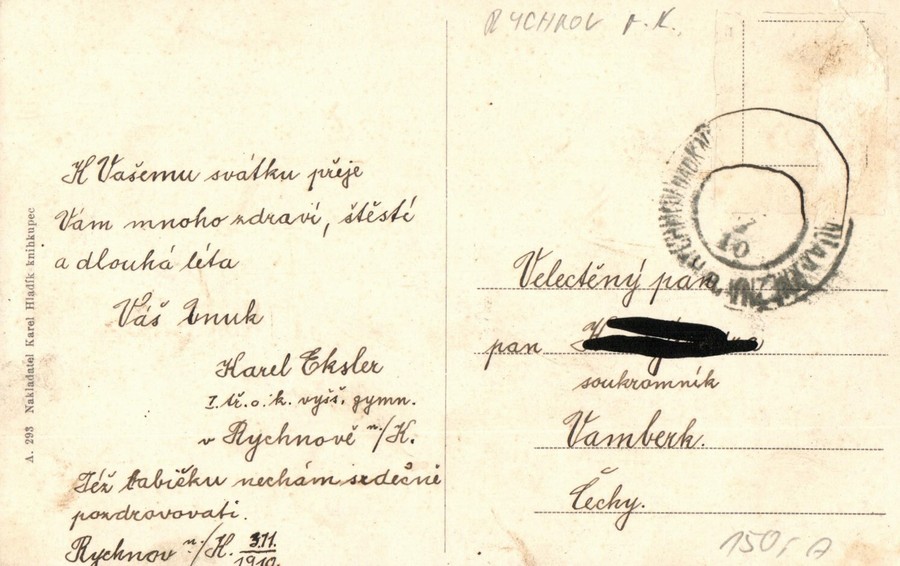 RYCHNOV n. K.
K Vašemu svátku přeje
Vám mnoho zdraví, štěstí
a dlouhá léta
Váš vnuk
Karel Eksler
I. tř. c. k. vyšš. gymn.
v Rychnově n./K.
Též babičku nechám srdečně
pozdravovati.
Rychnov n./K. 3.11.
1910.
A. 293 Nakladatel Karel Hladík knihkupec
7
10
Velectěný pan
pan
soukromník
Vamberk.
Čechy.
150,- A